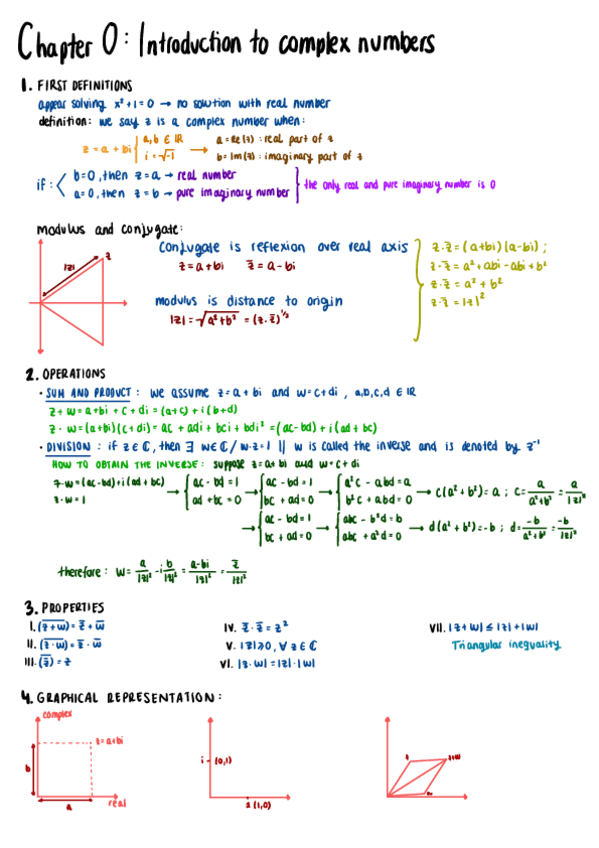 Chapter 0: Introduction to complex numbers
1. FIRST DEFINITIONS
appear solving x²+1=0 → no solution with real number
definition: we say z is a complex number when:
z = a + bi { a,b ∈ ℝ
i = √-1 → a = Re(z) : real part of z
b = Im(z) : imaginary part of z
if: < b=0, then z=a → real number
a=0, then z=b → pure imaginary number } the only real and pure imaginary number is 0
Modulus and conjugate:
|z|
z
Conjugate is reflexion over real axis
z = a+bi z̅ = a-bi
modulus is distance to origin
|z| = √a²+b² = (z·z̅)^½
z·z̅ = (a+bi)(a-bi);
z·z̅ = a²+abi-abi+b²
z·z̅ = a²+b²
z·z̅ = |z|²
2. OPERATIONS
· SUM AND PRODUCT: we assume z=a+bi and w=c+di, a,b,c,d ∈ ℝ
z+w = a+bi+c+di = (a+c)+i(b+d)
z·w = (a+bi)(c+di) = ac+adi+bci+bdi² = (ac-bd)+i(ad+bc)
· DIVISION: if z∈ℂ, then ∃ w∈ℂ/w·z=1 || w is called the inverse and is denoted by z⁻¹
HOW TO OBTAIN THE INVERSE: suppose z=a+bi and w=c+di
z·w=(ac-bd)+i(ad+bc)
z·w=1
→ { ac-bd=1
ad+bc=0
→ { ac-bd=1
bc+ad=0
→ { a²c-abd=a
b²c+abd=0
→ c(a²+b²)=a ; c= a/a²+b² = a/|z|²
→ { ac-bd=1
bc+ad=0
→ { abc-b²d=b
abc+a²d=0
→ d(a²+b²)=-b ; d= -b/a²+b² = -b/|z|²
therefore: w= a/|z|² -i b/|z|² = a-bi/|z|² = z̅/|z|²
3. PROPERTIES
I. (z+w)̅ = z̅+w̅
II. (z·w)̅ = z̅·w̅
III. (z̅)̅ = z
IV. z̅·z̅ = z²
V. |z|≥0, ∀ z∈ℂ
VI. |z·w|=|z|·|w|
VII. |z+w|≤|z|+|w|
Triangular inequality
4. GRAPHICAL REPRESENTATION:
complex
z=a+bi
b
a
real
i - (0,1)
1 (1,0)
z
z+w
w